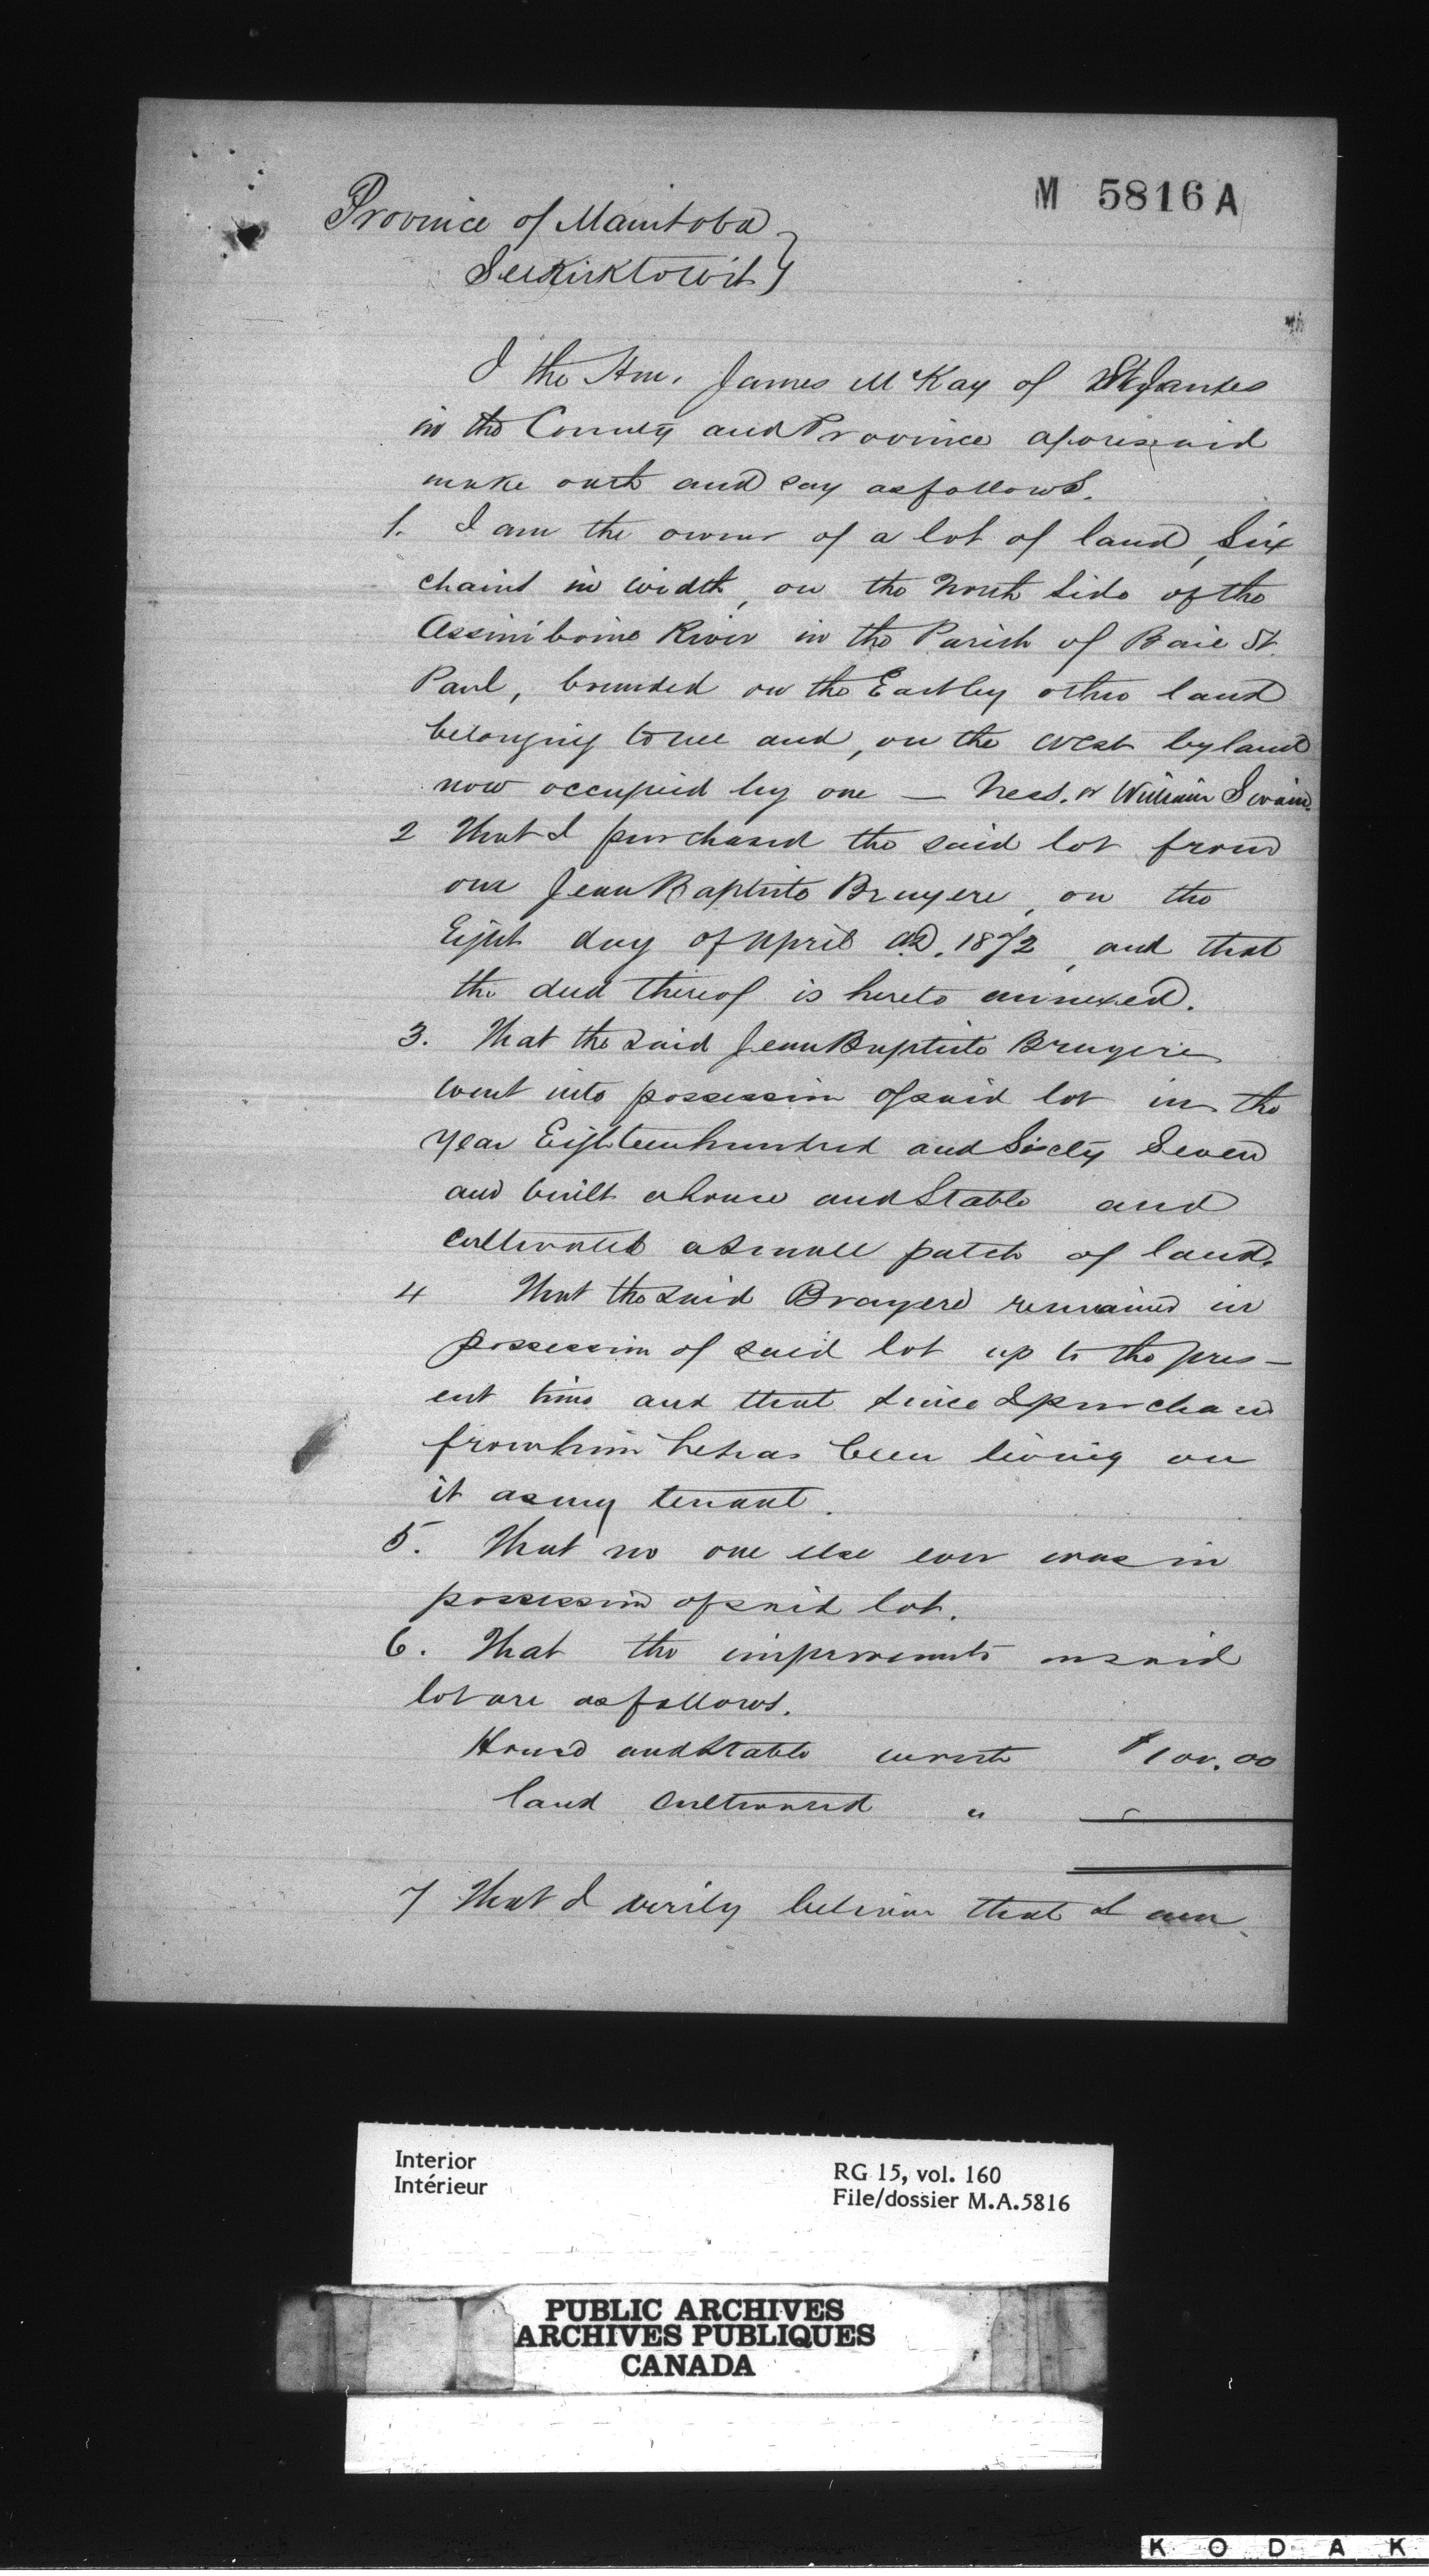 M 5816 A
Province of Manitoba }
Selkirk to wit }
I the Hon. James McKay of St James
in the County and Province aforesaid
make oath and say as follows.
1. I am the owner of a lot of land, Six
chains in width, on the North Side of the
Assiniboine River in the Parish of Baie St.
Paul, bounded on the East by other land
belonging to me and, on the West by land
now occupied by one — Ness. or William Swain.
2 That I purchased the said lot from
one Jean Baptiste Bruyere, on the
Eight day of April A.D. 1872, and that
the deed thereof is hereto annexed.
3. That the said Jean Baptiste Bruyere
went into possession of said lot in the
year Eighteen hundred and Sixty Seven
and built a house and Stable and
cultivated a Small patch of land.
4 That the said Brayere remained in
possession of said lot up to the pres-
ent time and that since I purchased
from him he has been living on
it as my tenant.
5. That no one else ever was in
possession of said lot.
6. That the improvements on said
lot are as follows.
House and Stable worth $100.00
land cultivated "
7 That I verily believe that I am
Interior
Intérieur
RG 15, vol. 160
File/dossier M.A.5816
PUBLIC ARCHIVES
ARCHIVES PUBLIQUES
CANADA
KODAK